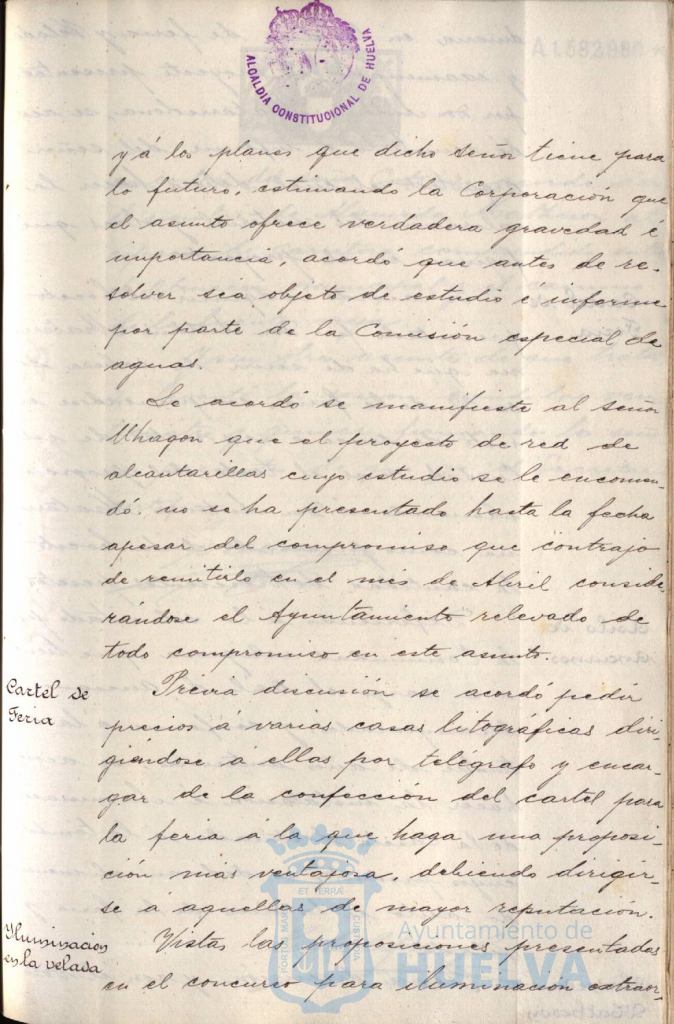 ALCALDIA CONSTITUCIONAL DE HUELVA
A1582980
y á los planes que dicho señor tiene para
lo futuro, estimando la Corporación que
el asunto ofrece verdadera gravedad é
importancia, acordó que antes de re-
solver sea objeto de estudio é informe
por parte de la Comisión especial de
aguas.
Se acordó se manifieste al señor
Uhagon que el proyecto de red de
alcantarillas cuyo estudio se le encomen-
dó, no se ha presentado hasta la fecha
apesar del compromiso que contrajo
de remitirlo en el mes de Abril conside-
rándose el Ayuntamiento relevado de
todo compromiso en este asunto.
Cartel de
Feria
Previa discusión se acordó pedir
precios á varias casas litográficas diri-
giéndose á ellas por telégrafo y encar-
gar de la confección del cartel para
la feria á la que haga una proposi-
ción más ventajosa, debiendo dirigir-
se á aquellas de mayor reputación.
Iluminacion
en la velada
Vistas las proposiciones presentadas
en el concurso para iluminacion extraor-
Ayuntamiento de
HUELVA